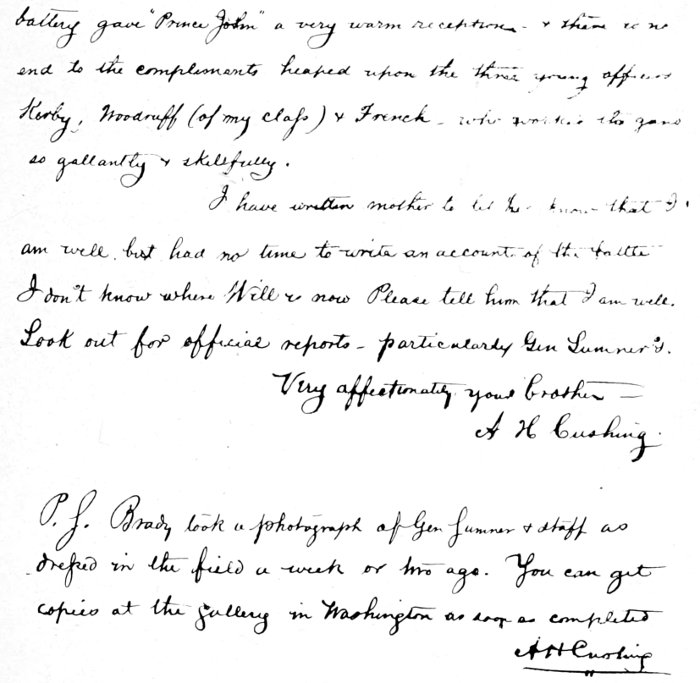 battery gave "Prince John" a very warm reception - & there is no
end to the compliments heaped upon the three young officers
Kerby, Woodruff (of my class) & French - who works the guns
so gallantly & skillfully.
I have written mother to let her know that I
am well, but had no time to write an account of the battle
I don't know where Will is now Please tell him that I am well.
Look out for official reports - particularly Gen Sumner's.
Very affectionately your brother -
A H Cushing.
P.S. Brady took a photograph of Gen Sumner & staff as
dressed in the field a week or two ago. You can get
copies at the gallery in Washington as soon as completed
A H Cushing